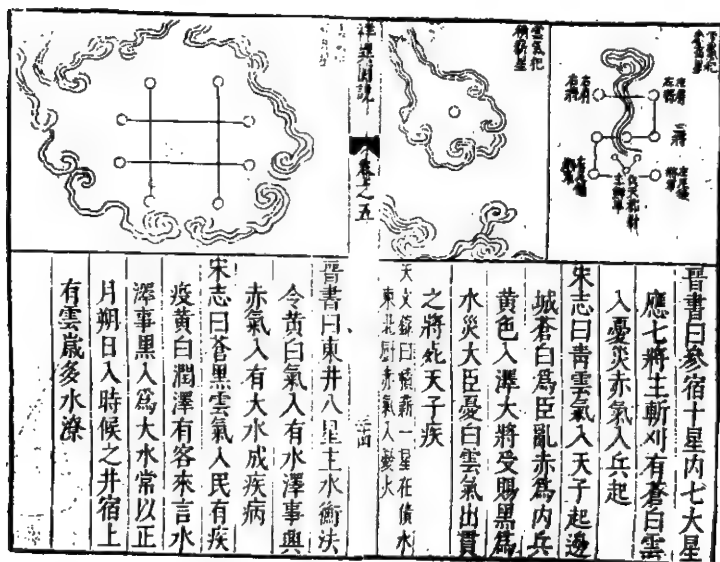 左將
右將
三將
主將軍
雲氣犯
積薪星
卷之五
晉書曰參宿十星內七大星
應七將主斬刈有蒼白雲
入憂災赤氣入兵起
宋志曰靑雲氣入天子起邊
城蒼白爲臣亂赤爲內兵
黃色入澤大將受賜黑爲
水災大臣憂白雲氣出貫
之將死天子疾
天文錄曰積薪一星在積水
東北廚赤氣入憂火
晉書曰東井八星主水衡法
令黃白氣入有水澤事興
赤氣入有大水成疾病
宋志曰蒼黑雲氣入民有疾
疫黃白潤澤有客來言水
澤事黑入爲大水常以正
月朔日入時候之井宿上
有雲歲多水潦